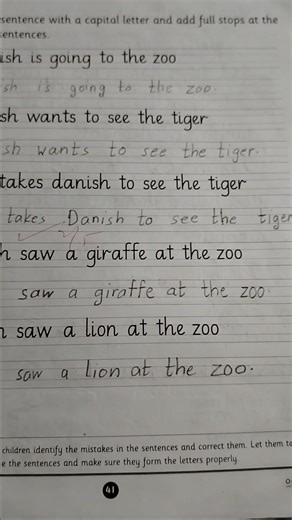 sentence with a capital letter and add full stops at the
sentences.
ish is going to the zoo
ish is going to the zoo.
sh wants to see the tiger
sh wants to see the tiger.
takes danish to see the tiger
takes Danish to see the tiger
h saw a giraffe at the zoo
saw a giraffe at the zoo.
saw a lion at the zoo
saw a lion at the zoo.
children identify the mistakes in the sentences and correct them. Let them
e the sentences and make sure they form the letters properly.
41